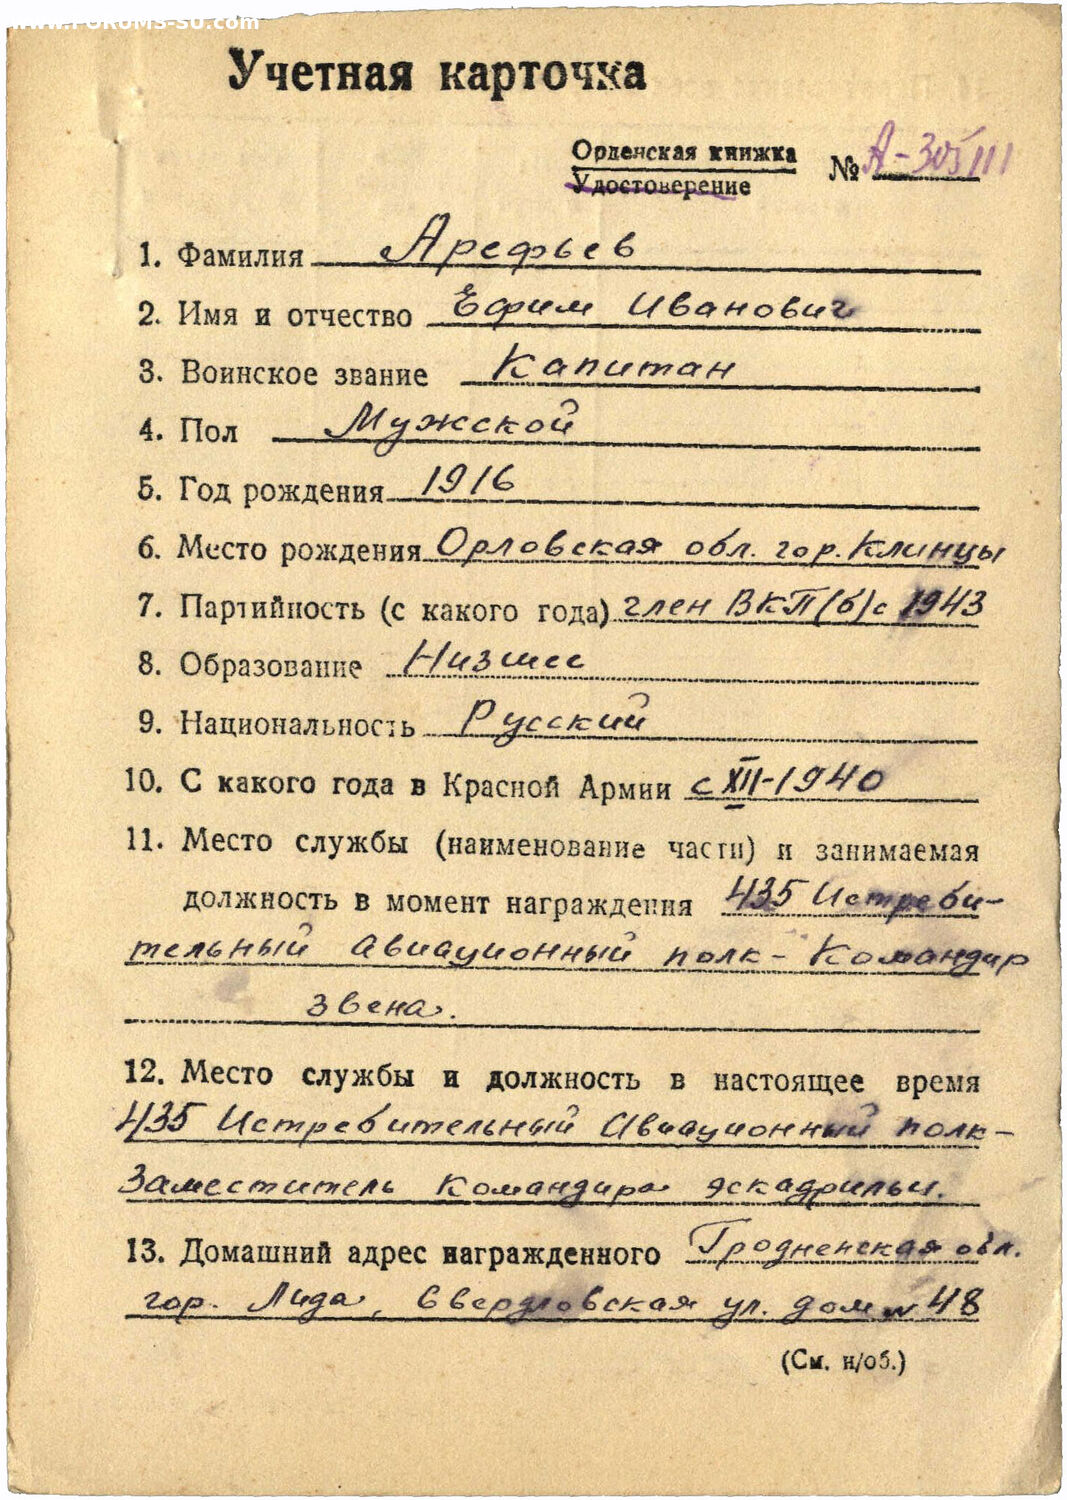 www.FORUMS-SU.com
Учетная карточка
Орденская книжка
Удостоверение
№ А-305111
1. Фамилия Арефьев
2. Имя и отчество Ефим Иванович
3. Воинское звание Капитан
4. Пол Мужской
5. Год рождения 1916
6. Место рождения Орловская обл. гор. Клинцы
7. Партийность (с какого года) член ВКП(б) с 1943
8. Образование Низшее
9. Национальность Русский
10. С какого года в Красной Армии с XII-1940
11. Место службы (наименование части) и занимаемая
должность в момент награждения 435 Истреби-
тельный авиационный полк - Командир
звена.
12. Место службы и должность в настоящее время
435 Истребительный Авиационный полк-
Заместитель командира эскадрильи.
13. Домашний адрес награжденного Гродненская обл.
гор. Лида, Свердловская ул. дом № 48
(См. н/об.)